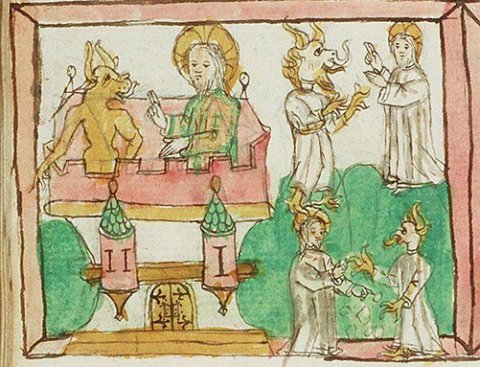 II I